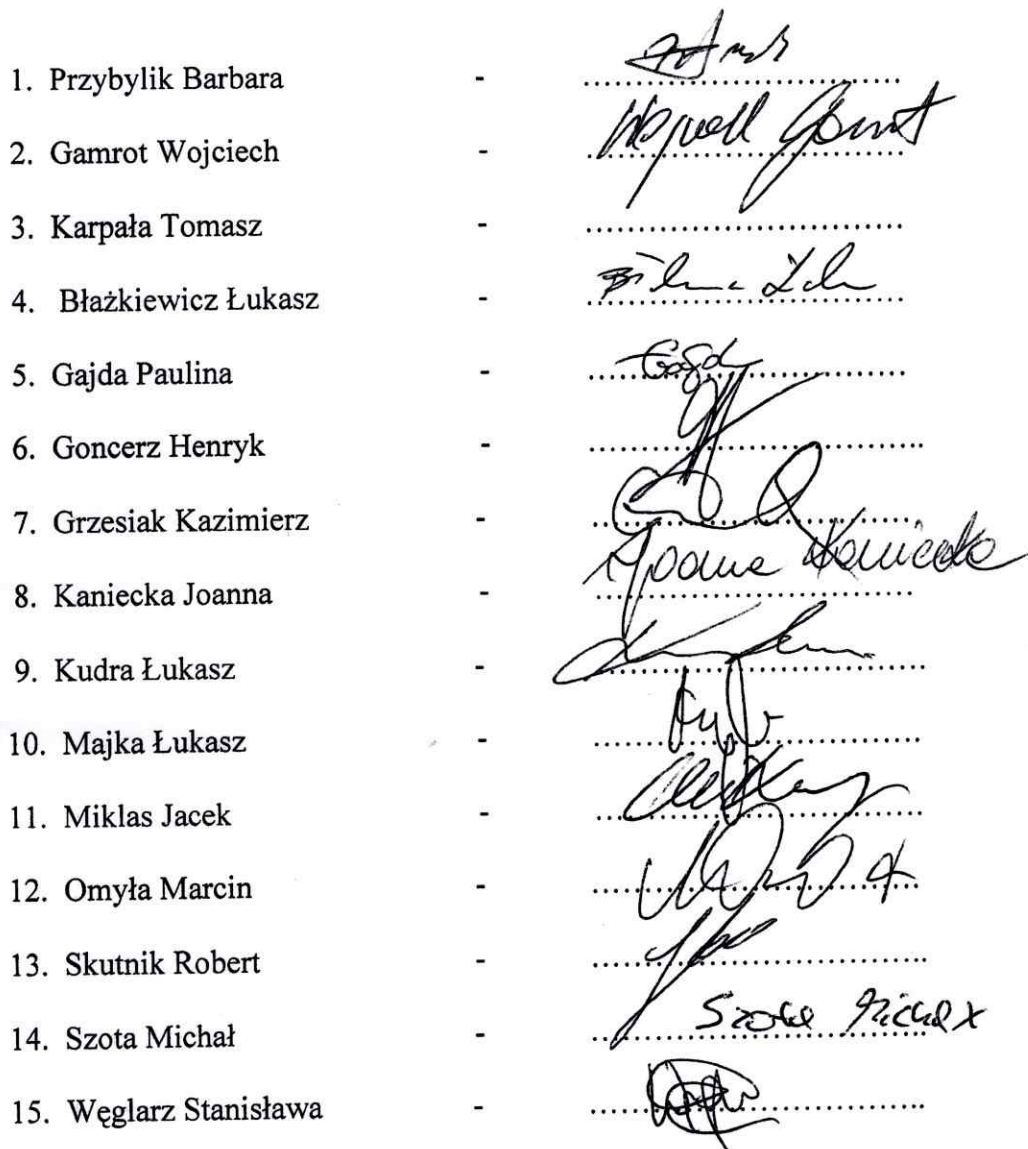 1. Przybylik Barbara - ..............................
2. Gamrot Wojciech - ..............................
3. Karpała Tomasz - ..............................
4. Błażkiewicz Łukasz - ..............................
5. Gajda Paulina - ..............................
6. Goncerz Henryk - ..............................
7. Grzesiak Kazimierz - ..............................
8. Kaniecka Joanna - .............................. Joanna Kaniecka
9. Kudra Łukasz - ..............................
10. Majka Łukasz - ..............................
11. Miklas Jacek - ..............................
12. Omyła Marcin - ..............................
13. Skutnik Robert - ..............................
14. Szota Michał - .............................. Szota Michał
15. Węglarz Stanisława - ..............................